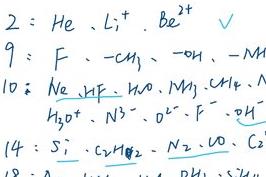 2: He、Li⁺、Be²⁺ ✓
9: F、-CH₃、-OH、-NH
10: Ne、HF、H₂O、NH₃、CH₄、N
H₃O⁺、N³⁻、O²⁻、F⁻、OH⁻
14: Si、C₂H₂、N₂、CO、C₂